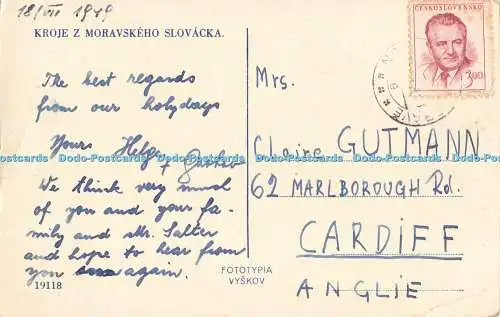 18/VII 1949
KROJE Z MORAVSKÉHO SLOVÁCKA.
The best regards
from our holydays
Yours Helga +
We think very much
of you and your fa-
mily and Mr. Salter
and hope to hear from
you again.
19118
FOTOTYPIA
VYŠKOV
ČESKOSLOVENSKO
3,00
Mrs.
Claire GUTMANN
62 MARLBOROUGH Rd.
CARDIFF
ANGLIE
Postcards Dodo-Postcards Dodo-Postcards Dodo-Postcards Dodo-Postcards Dodo-Postcards